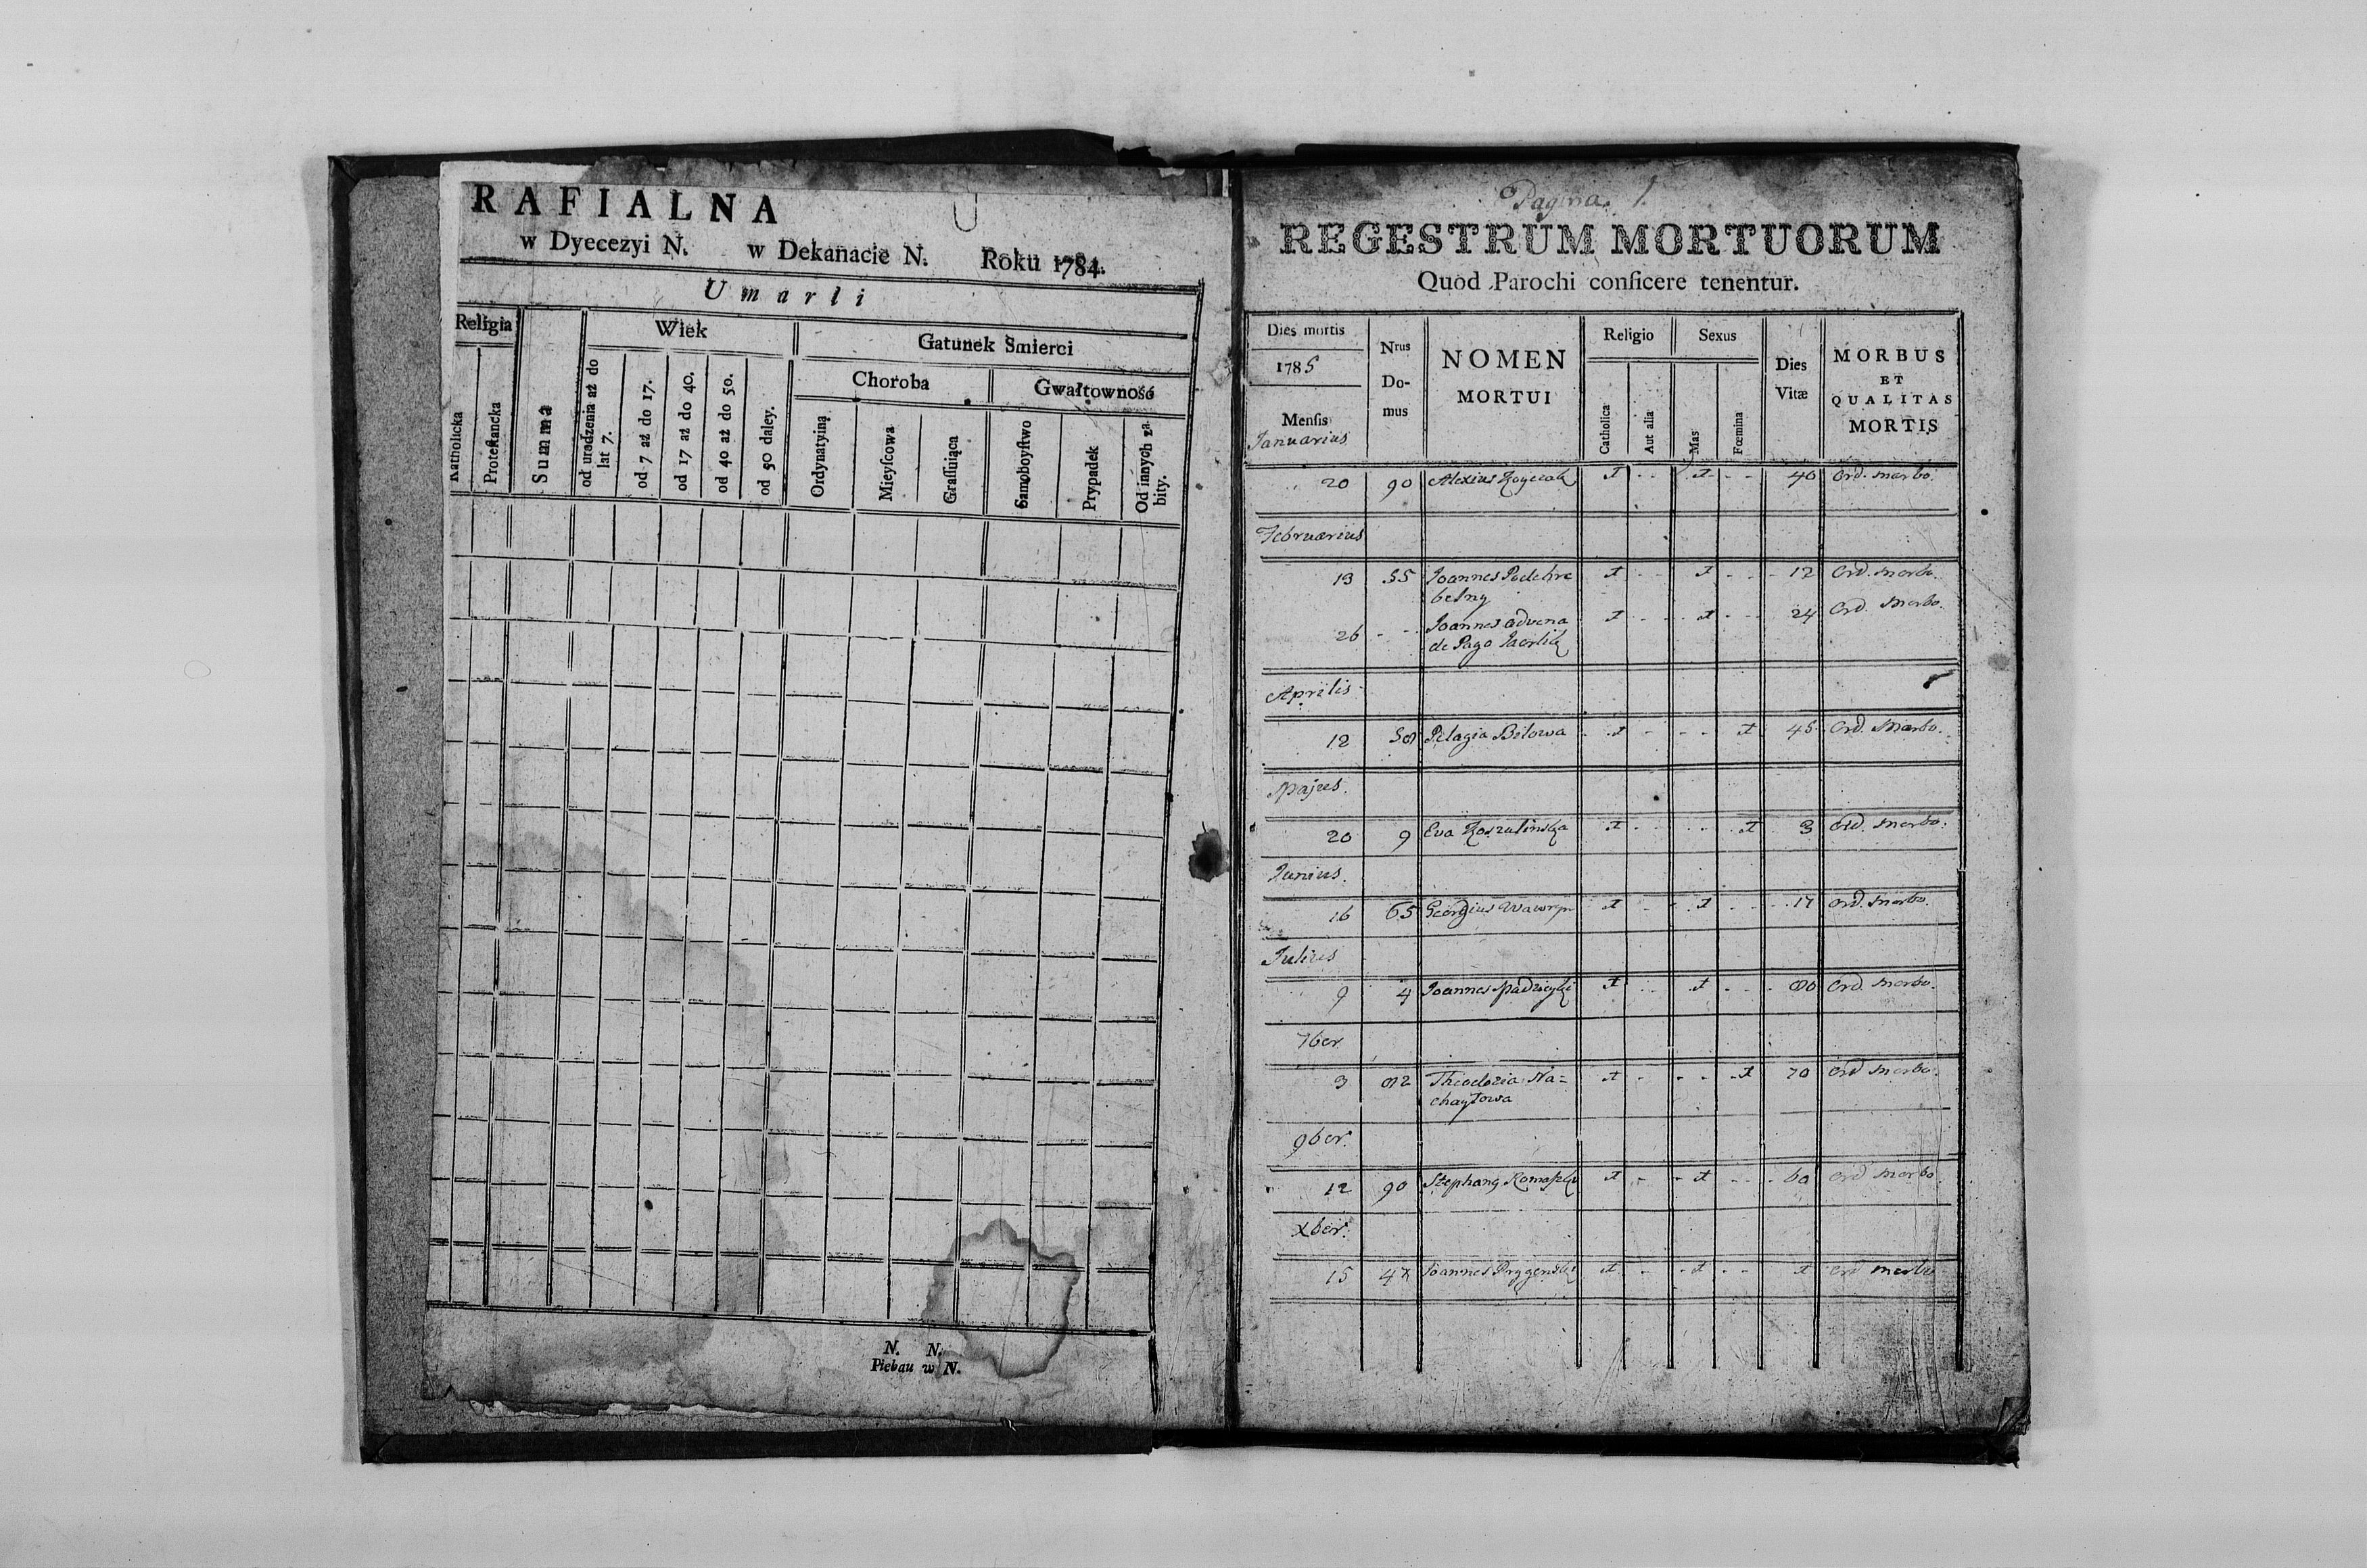 RAFIALNA
w Dyecezyi N. w Dekanacie N. Roku 1784.
Umarli
Religia
Wiek
Gatunek Smierci
Choroba
Gwałtowność
Katholicka
Protestancka
Summa
od urodzenia aż do lat 7.
od 7 aż do 17.
od 17 aż do 40.
od 40 aż do 50.
od 50 daley.
Ordynatyiną
Mieyſcowa
Graſſuiąca
Samoboyſtwo
Prypadek
Od innych zabity.
N. N.
Pleban w N.
Pagina. 1.
REGESTRUM MORTUORUM
Quod Parochi conficere tenentur.
Dies mortis
1785
Menſis
Januarius
Nrus Domus
NOMEN
MORTUI
Religio
Catholica
Aut alia
Sexus
Mas
Fœmina
Dies
Vitæ
MORBUS
ET
QUALITAS
MORTIS
20 90 Alexius 40 Ord. morbo.
Februarius
13 55 Joannes 12 Ord. morbo.
26 Joannes advena 24 Ord. Morbo.
de Pago
Aprilis
12 Pelagia Bilowa 45 Ord. Morbo.
Majus.
20 9 Eva 3 Ord. morbo.
Junius.
16 65 Georgius 17 Ord. morbo.
Julius
9 4 Joannes Ord. morbo.
7ber
3 Theodozia Na=
chaytowa 70 Ord morbo.
9ber.
12 90 60 Ord morbo.
Xber.
15 Joannes Ord morbo